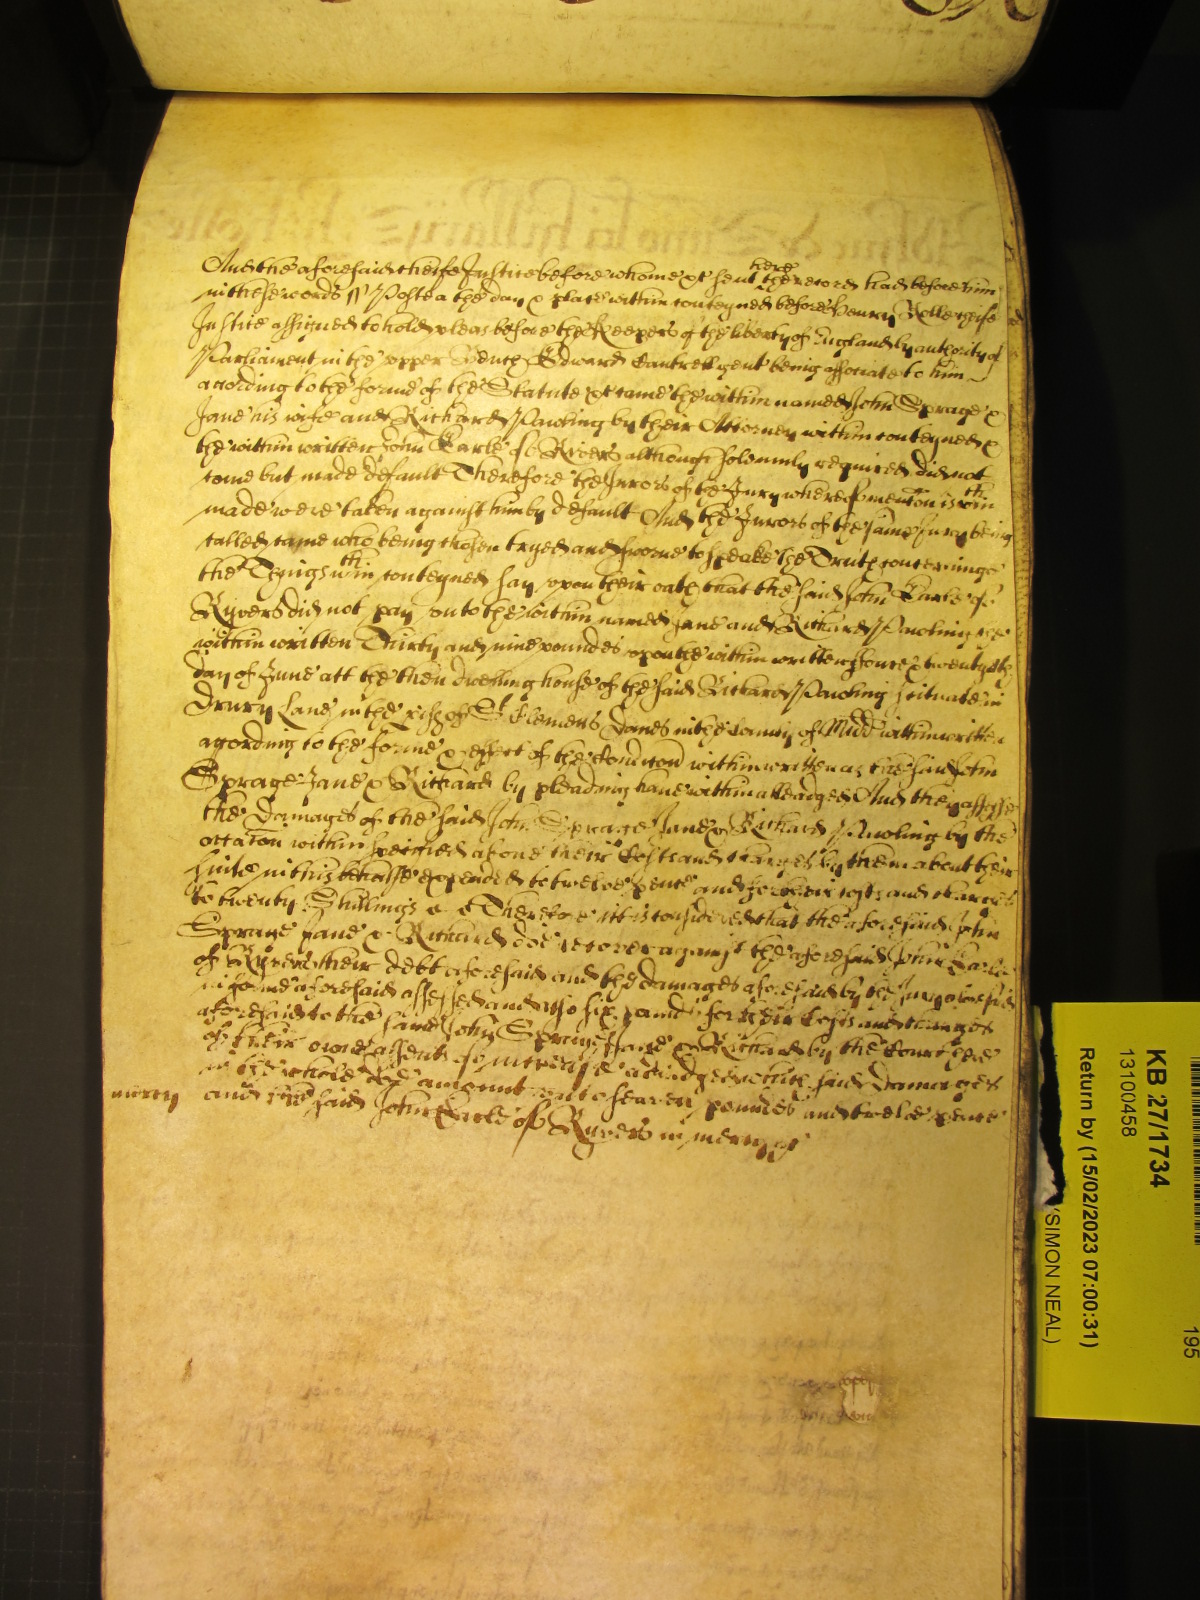 And the aforesaid cheife Justice before whome &c sent here the record had before him
in these words ss Postea the day & place within conteyned before Henry Rolle cheife
Justice assigned to hold pleas before the Keepers of the liberty of England by authority of
Parliament in the upper Bench Edward Cantrell gent being associate to him
according to the forme of the Statute &c came the within named John Sprage &
Jane his wife and Richard Pawling by their Attorney within conteyned &
the within written John Earle of Rivers although solemnly required did not
come but made default Therefore the Jurors of the Jury whereof mention is wthin
made were taken against him by default And the Jurors of the same Jury being
called came who being chosen tryed and sworne to speake the Truth concerninge
the Things wthin conteyned say upon their oath that the said John Earle of
Ryvers did not pay unto the within named Jane and Richard Pawling the
within written Thirty and nine poundes upon the within written foure & twentyeth
day of June att the then dwelling house of the said Richard Pawling scituate in
Drury Lane in the prish of St Clements Danes in the County of Midd within written
according to the forme & effect of the Condicon within written as the said John
Sprage Jane & Richard by pleading have within alleadged And they assesse
the Damages of the said John Sprage Jane & Richard Pawling by the
occasion within specified above their Costs and charges by them about their
suite in this behalfe expended to twelve pence and for their costs and charges
to twenty Shillings &c Therefore it is considered that the aforesaid John
Sprage Jane & Richard doe recover against the aforesaid John Earle
of Ryvers their debt aforesaid and the damages aforesaid by the Jury aforesaid
in forme aforesaid assessed and also six pounds for their Costs and charges
aforesaid to the same John Sprage Jane & Richard by the Court here
of their owne assent of increase adiudged which said Damages
in the whole doe amount unto seaven poundes and twelve pence
mercy and the said John Earle of Ryvers in mercy &c
KB 27/1734
13100458
Return by (15/02/2023 07:00:31)
(SIMON NEAL)
195